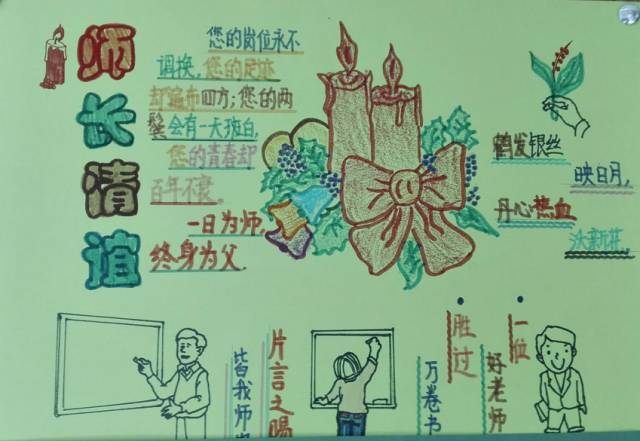 师长情谊
您的岗位永不
调换，您的足迹
却遍布四方；您的两
鬓会有一天斑白，
您的青春却
百年不衰。
一日为师，
终身为父。
鹤发银丝
映日月，
丹心热血
沃新花。
皆我师也
片言之赐
一位
好老师
胜过
万卷书